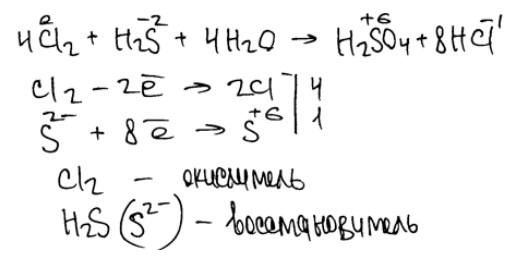 4Cl₂⁰ + H₂S⁻² + 4H₂O → H₂S⁺⁶O₄ + 8HCl⁻¹
Cl₂ − 2e̅ → 2Cl | 4
S²⁻ + 8e̅ → S⁺⁶ | 1
Cl₂ − окислитель
H₂S (S²⁻) − восстановитель